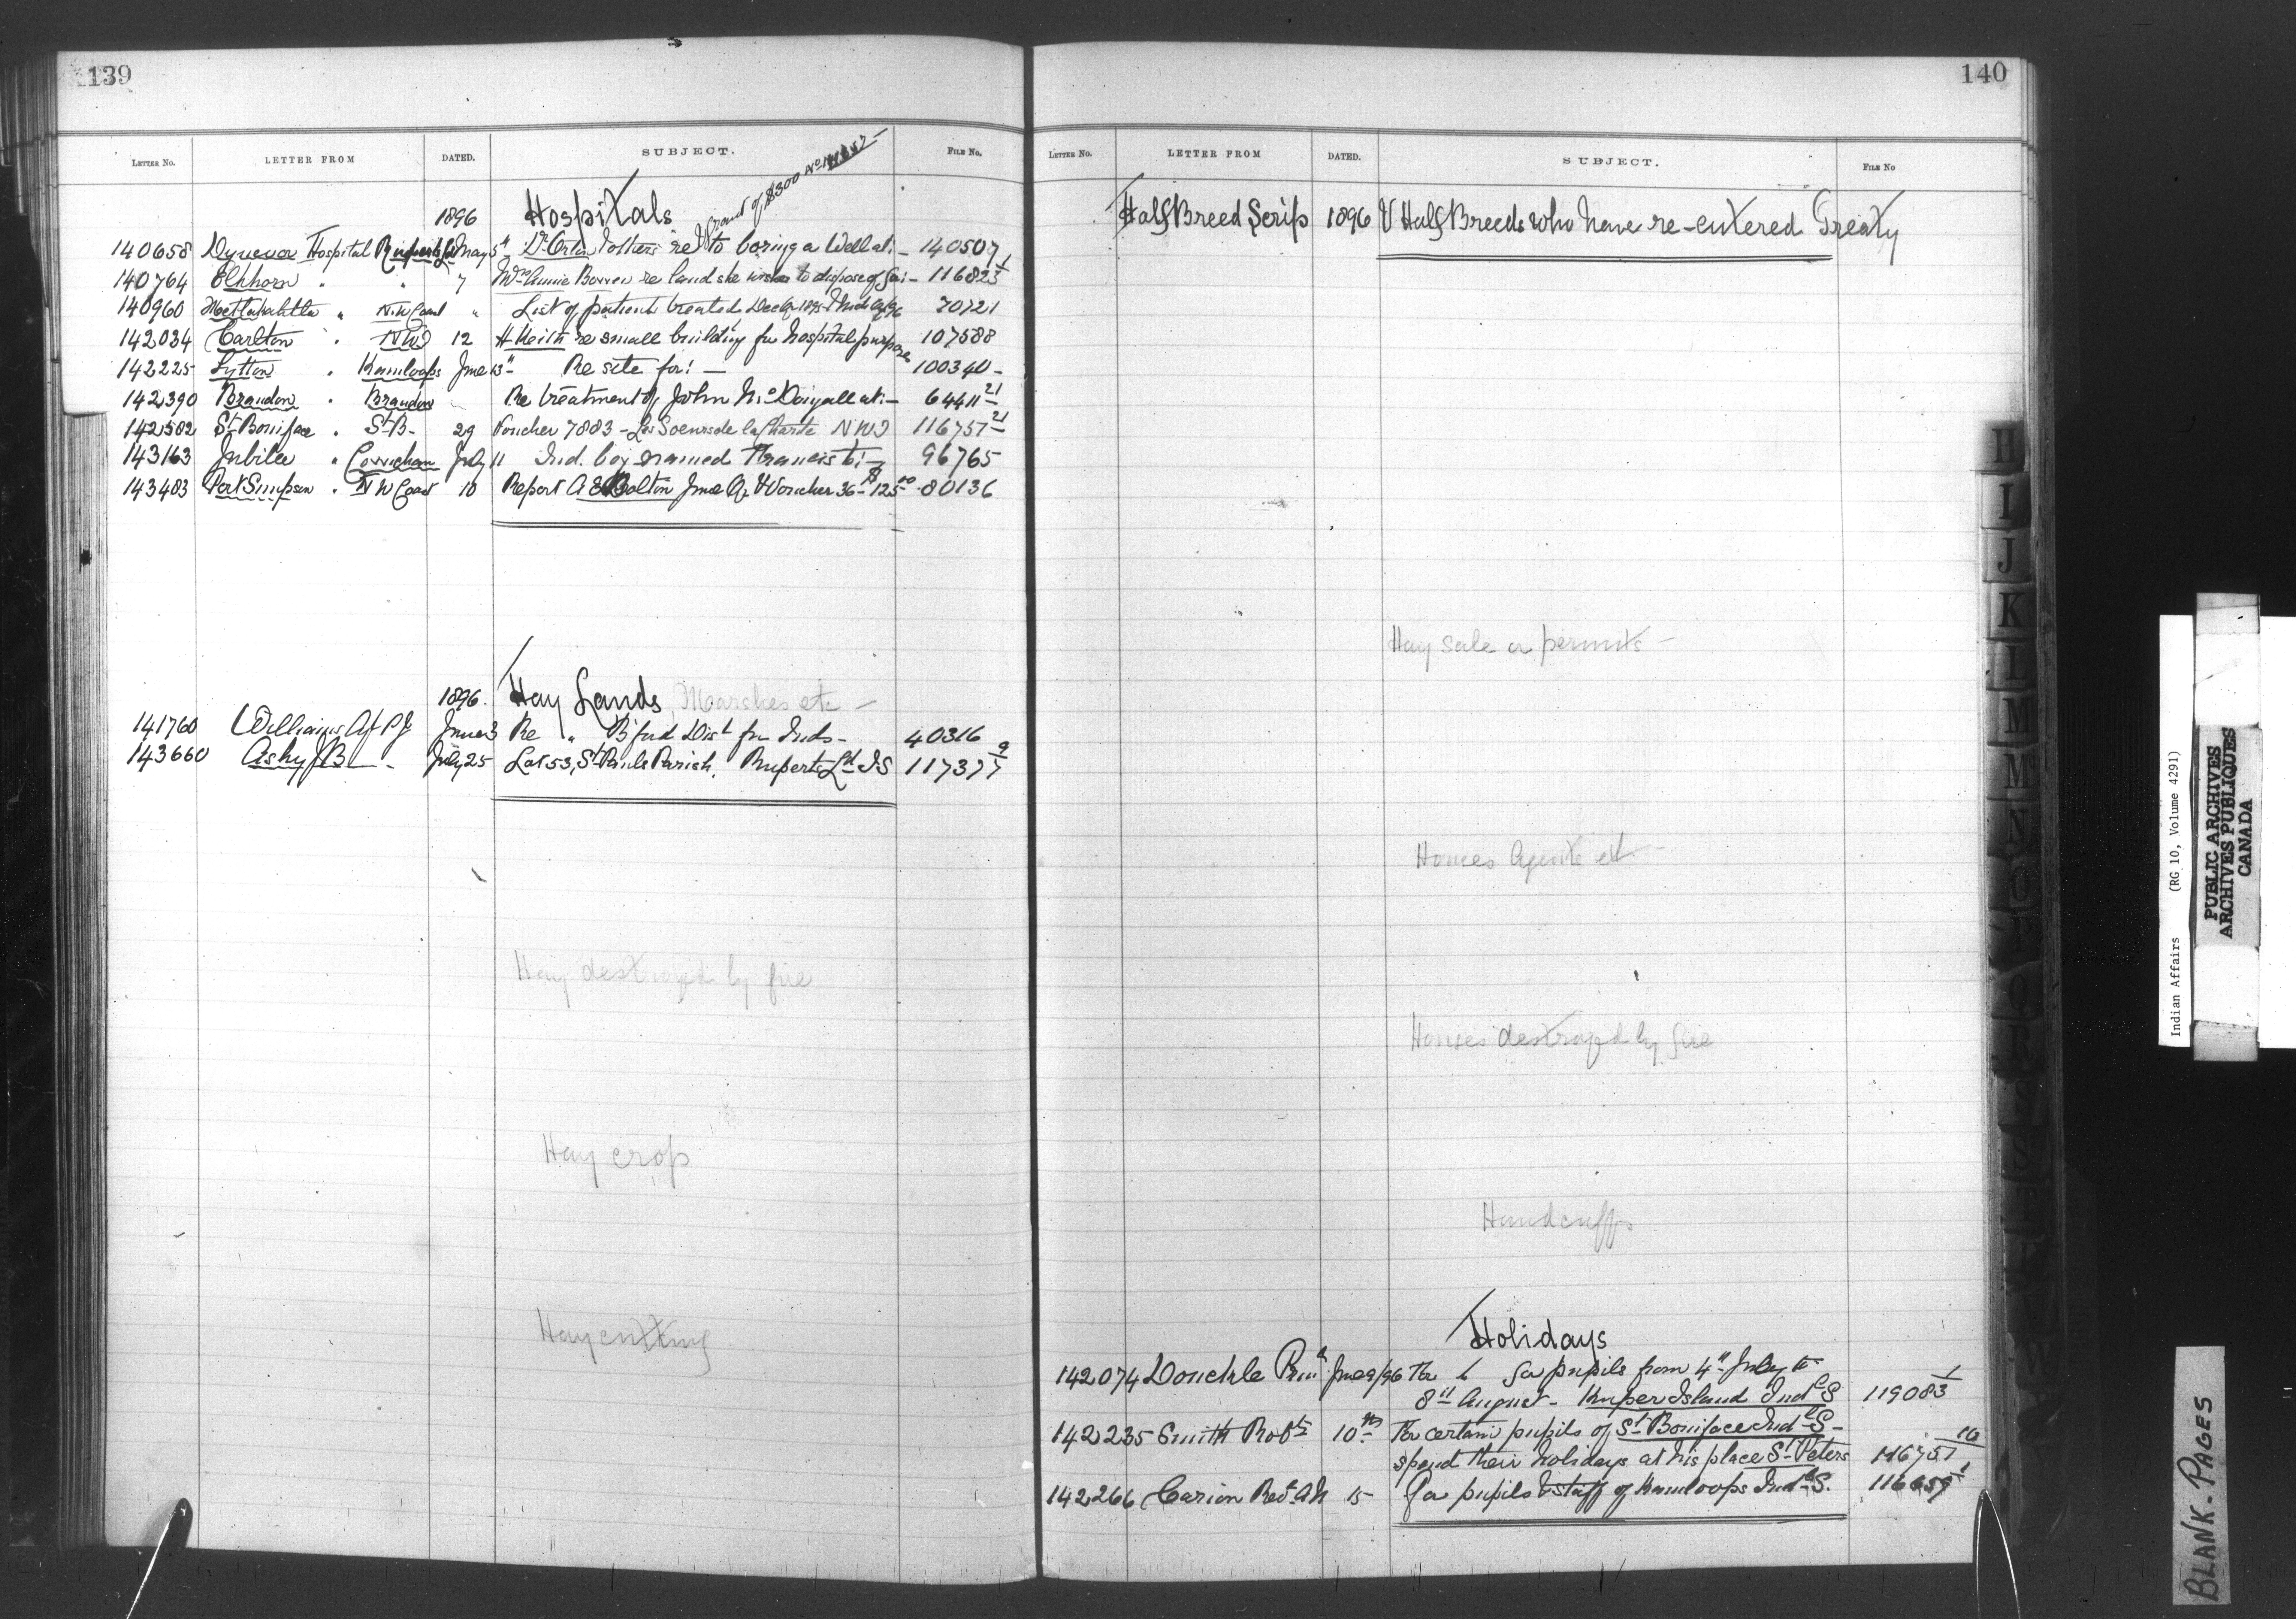 139
LETTER NO. LETTER FROM DATED. SUBJECT. FILE NO.
Grant of $300 No
1896 Hospitals
140658 Dynevor Hospital Ruperts Ld May 5" Dr Orton & others re to boring a Well at:- 140507 1
140764 Elkhorn " " 7 Mrs Annie Borren re land she wishes to dispose of for:- 116823 1
140960 Metlakahtla " N.W Coast " List of patients treated Dec Qr 1895 & Mch Qr/96 70721
142034 Carlton " NWT 12 H Keith re small building for hospital purposes 107588
142225 Lytton " Kamloops June 13" Re site for:- 100340-
142390 Brandon " Brandon " Re treatment of John McDougall at:- 64411 21
142502 St Boniface " St B- 29 Voucher 7883 - Les Soeurs de la Charite NWT 116751 21
143163 Jubilee " Cowichan July 11 Ind. boy named Francis to:- 96765
143483 Port Simpson " N W Coast 10 Report A E Bolton June Qr & Voucher 36- $125 00 80136
1896. Hay Lands, Marshes etc -
141760 Williams Agt P J June 3 Re " B'ford Dist for Inds- 40316
143660 Ashby J B - July 25 Lot 53, St Pauls Parish. Ruperts Ld I S 117377 9
Hay destroyed by fire
Hay crop
Hay cutting
140
LETTER NO. LETTER FROM DATED. SUBJECT. FILE NO
Half Breed Scrip 1896 V Half Breeds who have re-entered Treaty
Hay sale or permits -
Houses Agents etc
Houses destroyed by fire
Handcuffs
Holidays
142074 Donckele June 9/96 For " for pupils from 4th July to
8th August - Kuper Island Indl S 119083 1
142235 Smith Robt 10th For certain pupils of St Boniface Indl S-
spend their holidays at his place St Peters 116751 16
142266 Carion Revd A M 15 For pupils & staff of Kamloops Indl S. 116659 1
H
I
J
K
L
M
Mc
N
O
P
Q
R
S
Indian Affairs (RG 10, Volume 4291)
PUBLIC ARCHIVES
ARCHIVES PUBLIQUES
CANADA
BLANK-PAGES